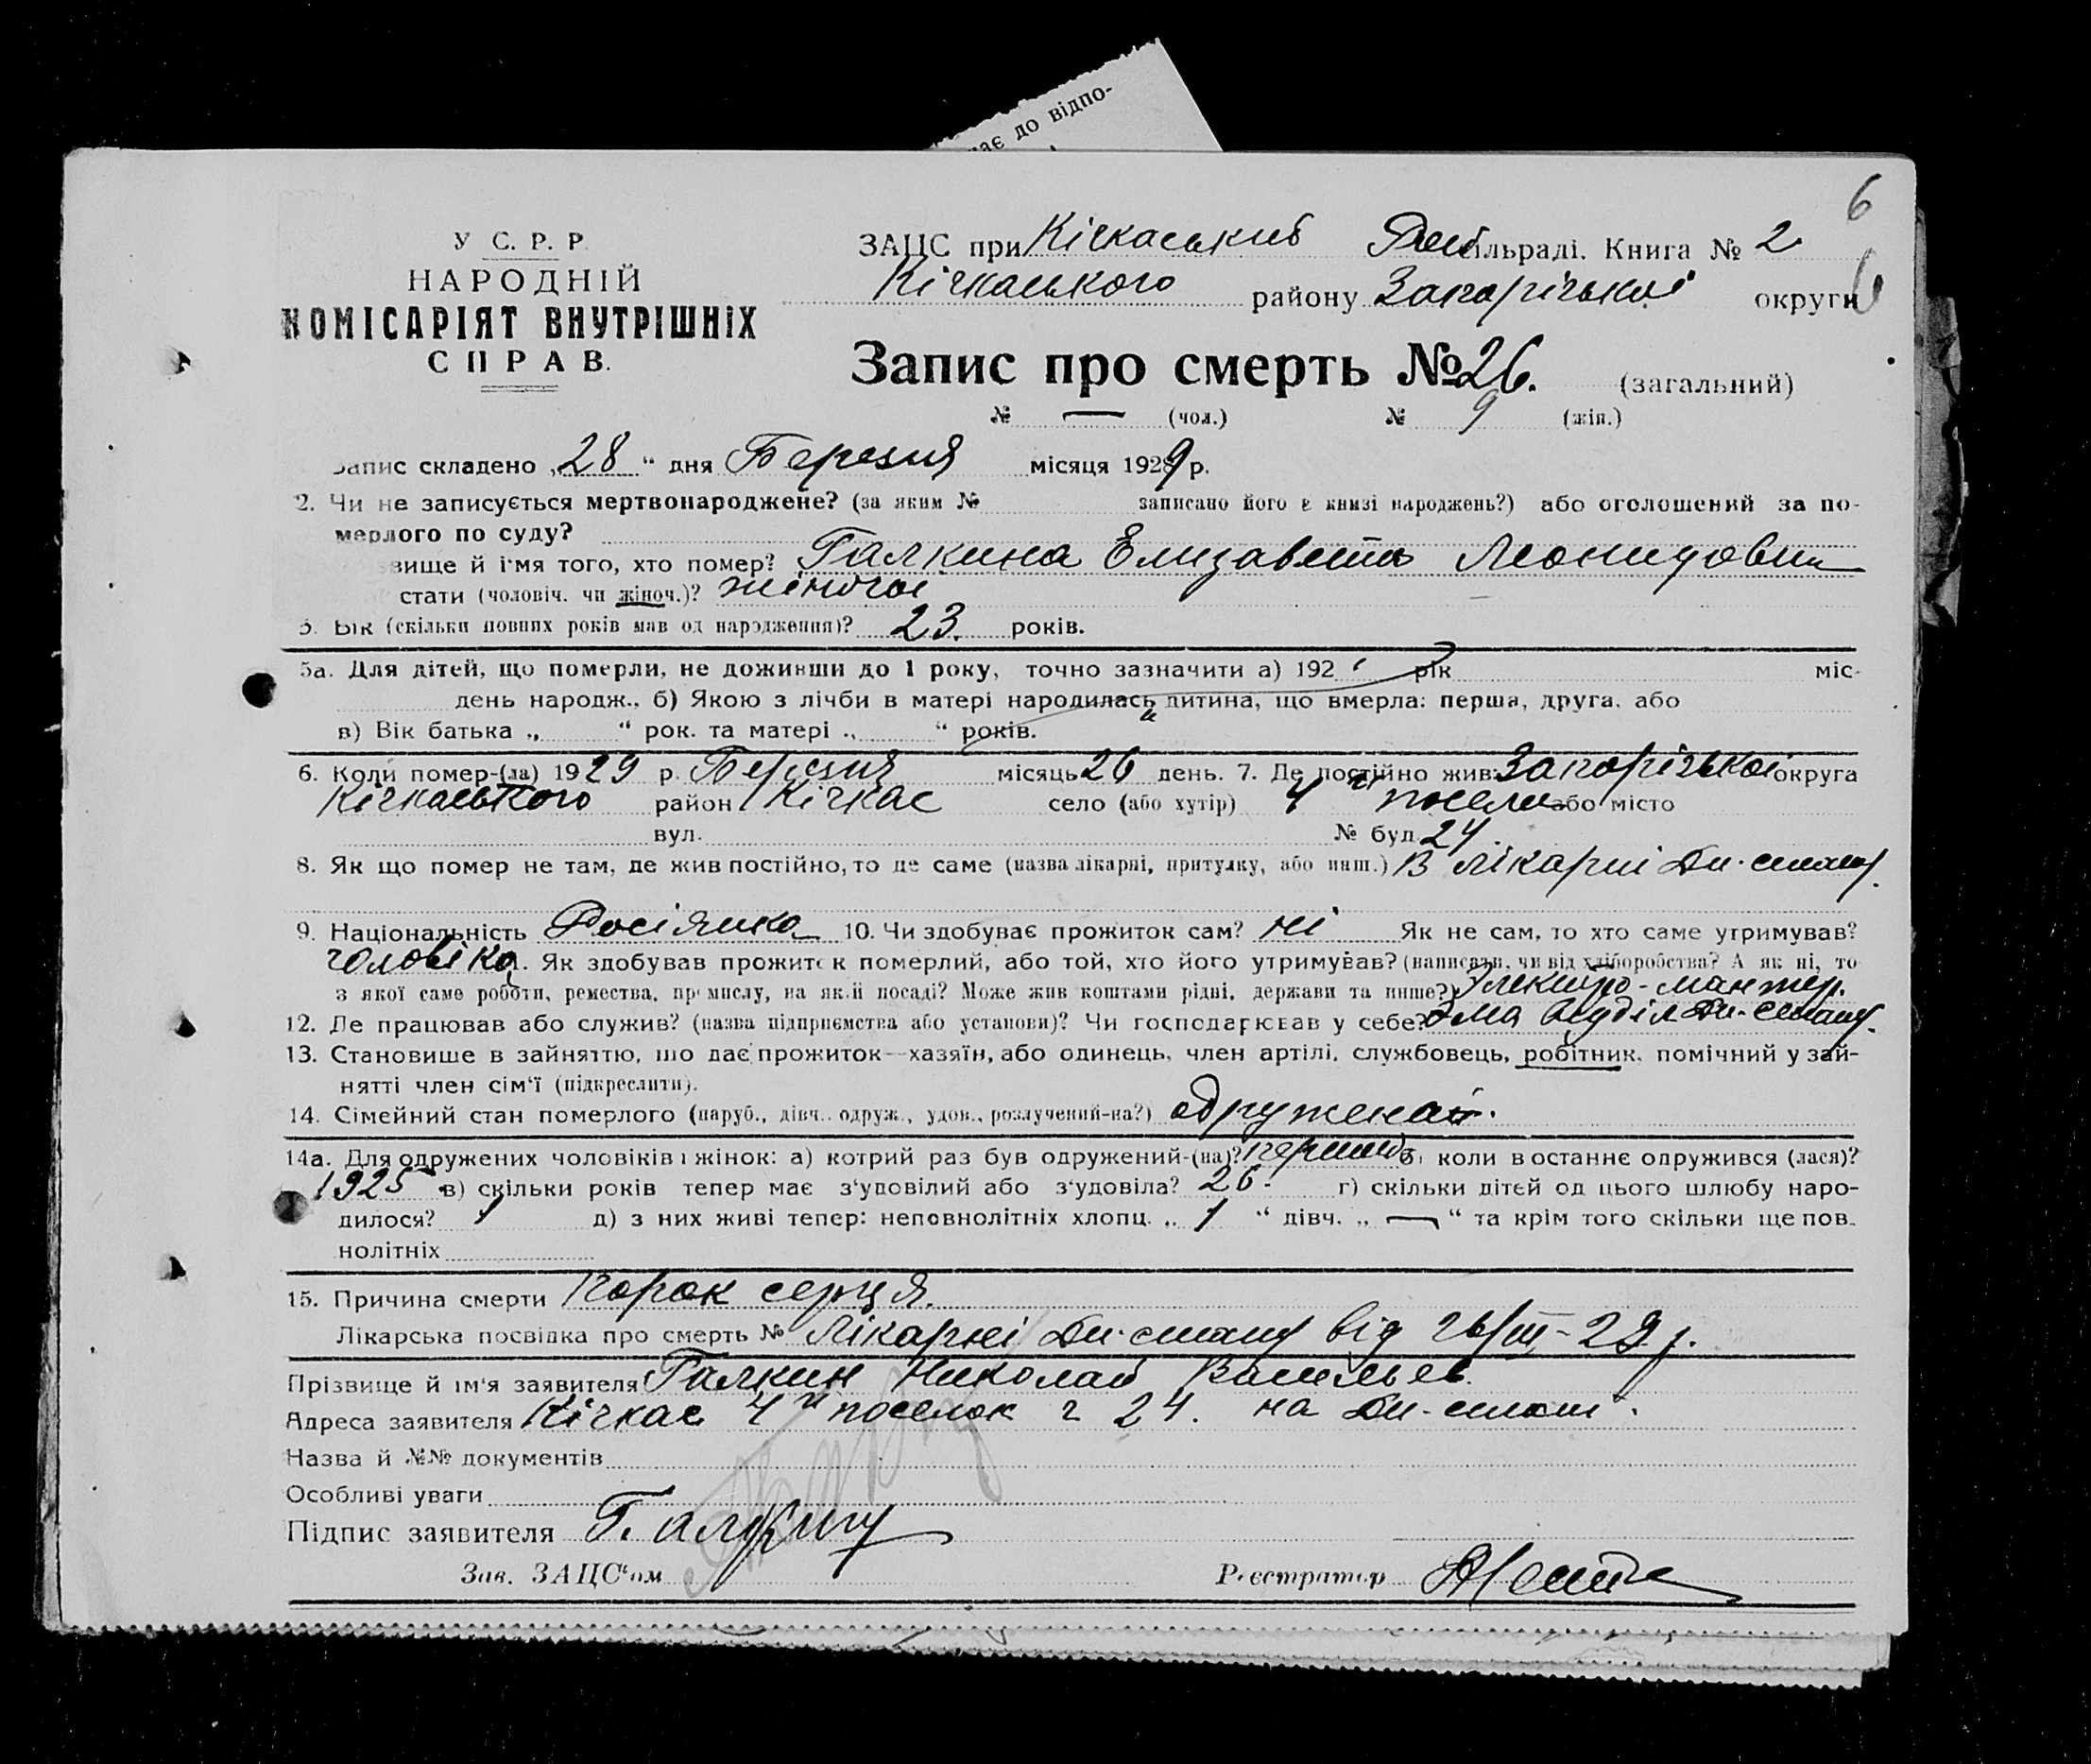 ває до відпо-
6
У С. Р. Р.
НАРОДНІЙ
КОМІСАРІЯТ ВНУТРІШНІХ
СПРАВ.
ЗАЦС при Кічкаський сільраді. Книга № 2
Кічкаського району Запорізької округи
6
Запис про смерть № 26. (загальний)
№ — (чол.) № 9 (жін.)
Запис складено „28" дня Березня місяця 1929 р.
2. Чи не записується мертвонароджене? (за яким № записано його в книзі народжень?) або оголошений за по-
мерлого по суду?
вище й і'мя того, хто помер? Галкина Елизавета Леонидовна
стати (чоловіч. чи жіноч.)? жіночої
5. Вік (скільки повних років мав од народження)? 23. років.
5а. Для дітей, що померли, не доживши до 1 року, точно зазначити а) 192 рік міс-
день народж., б) Якою з лічби в матері народилась дитина, що вмерла: перша, друга, або
в) Вік батька „ " рок. та матері „ " років.
6. Коли помер-(ла) 1929 р. Березня місяць 26 день. 7. Де постійно жив: Запорізької округа
Кічкаського район Кічкас село (або хутір) 4й поселок або місто
вул. № буд. 24.
8. Як що помер не там, де жив постійно, то де саме (назва лікарні, притулку, або инш.) В лікарні Дн-стану.
9. Національність Росіянка 10. Чи здобуває прожиток сам? ні Як не сам, то хто саме утримував?
чоловіка. Як здобував прожиток померлий, або той, хто його утримував? (написати, чи від хліборобства? А як ні, то
з якої саме роботи, ремества, промислу, на якій посаді? Може жив коштами рідні, держави та инше?) Электро-мантер.
12. Де працював або служив? (назва підприємства або установи)? Чи господарював у себе? відділ Дн-стану.
13. Становище в зайняттю, що дає прожиток—хазяїн, або одинець, член артілі, службовець, робітник, помічний у зай-
нятті член сім'ї (підкреслити).
14. Сімейний стан померлого (паруб., дівч. одруж., удов., розлучений-на?) одружена.
14а. Для одружених чоловіків і жінок: а) котрий раз був одружений-(на)? перший б) коли в останнє одружився (лася)?
1925 в) скільки років тепер має з'уповілий або з'удовіла? 26. г) скільки дітей од цього шлюбу наро-
дилося? 1 д) з них живі тепер: неповнолітніх хлопц. „ 1 " дівч. „ — " та крім того скільки ще пов-
нолітніх
15. Причина смерти Порок серця.
Лікарська посвідка про смерть № Лікарні Дн-стану від 26/III-29 р.
Прізвище й ім'я заявителя Галкин Николай Васильев.
Адреса заявителя Кічкас 4й поселок 24. на Дн-стані.
Назва й №№ документів
Особливі уваги
Підпис заявителя Галкин
Зав. ЗАЦС'ом Реєстратор